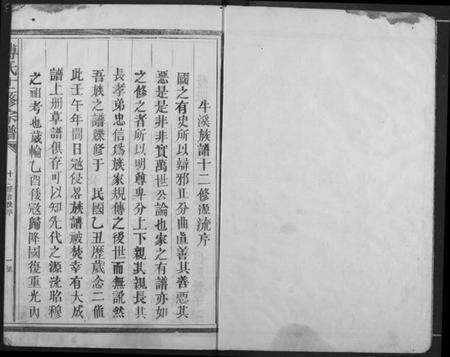 牛溪族譜十二修源流序
國之有史所以辯邪正分曲直善其善惡其
惡是是非非實萬世公論也家之有譜亦如
之修之者所以明尊卑分上下親其親長其
長孝弟忠信為族家規傳之後世而無謊然
吾族之譜繰修于 民國乙丑歷歲念二值
此壬午年間日寇侵畧族譜被焚幸有大成
譜上册草譜俱存可以知先代之源流昭穆
之祖考也歲輪乙酉倭寇歸降國復重光內
氏 修宗譜